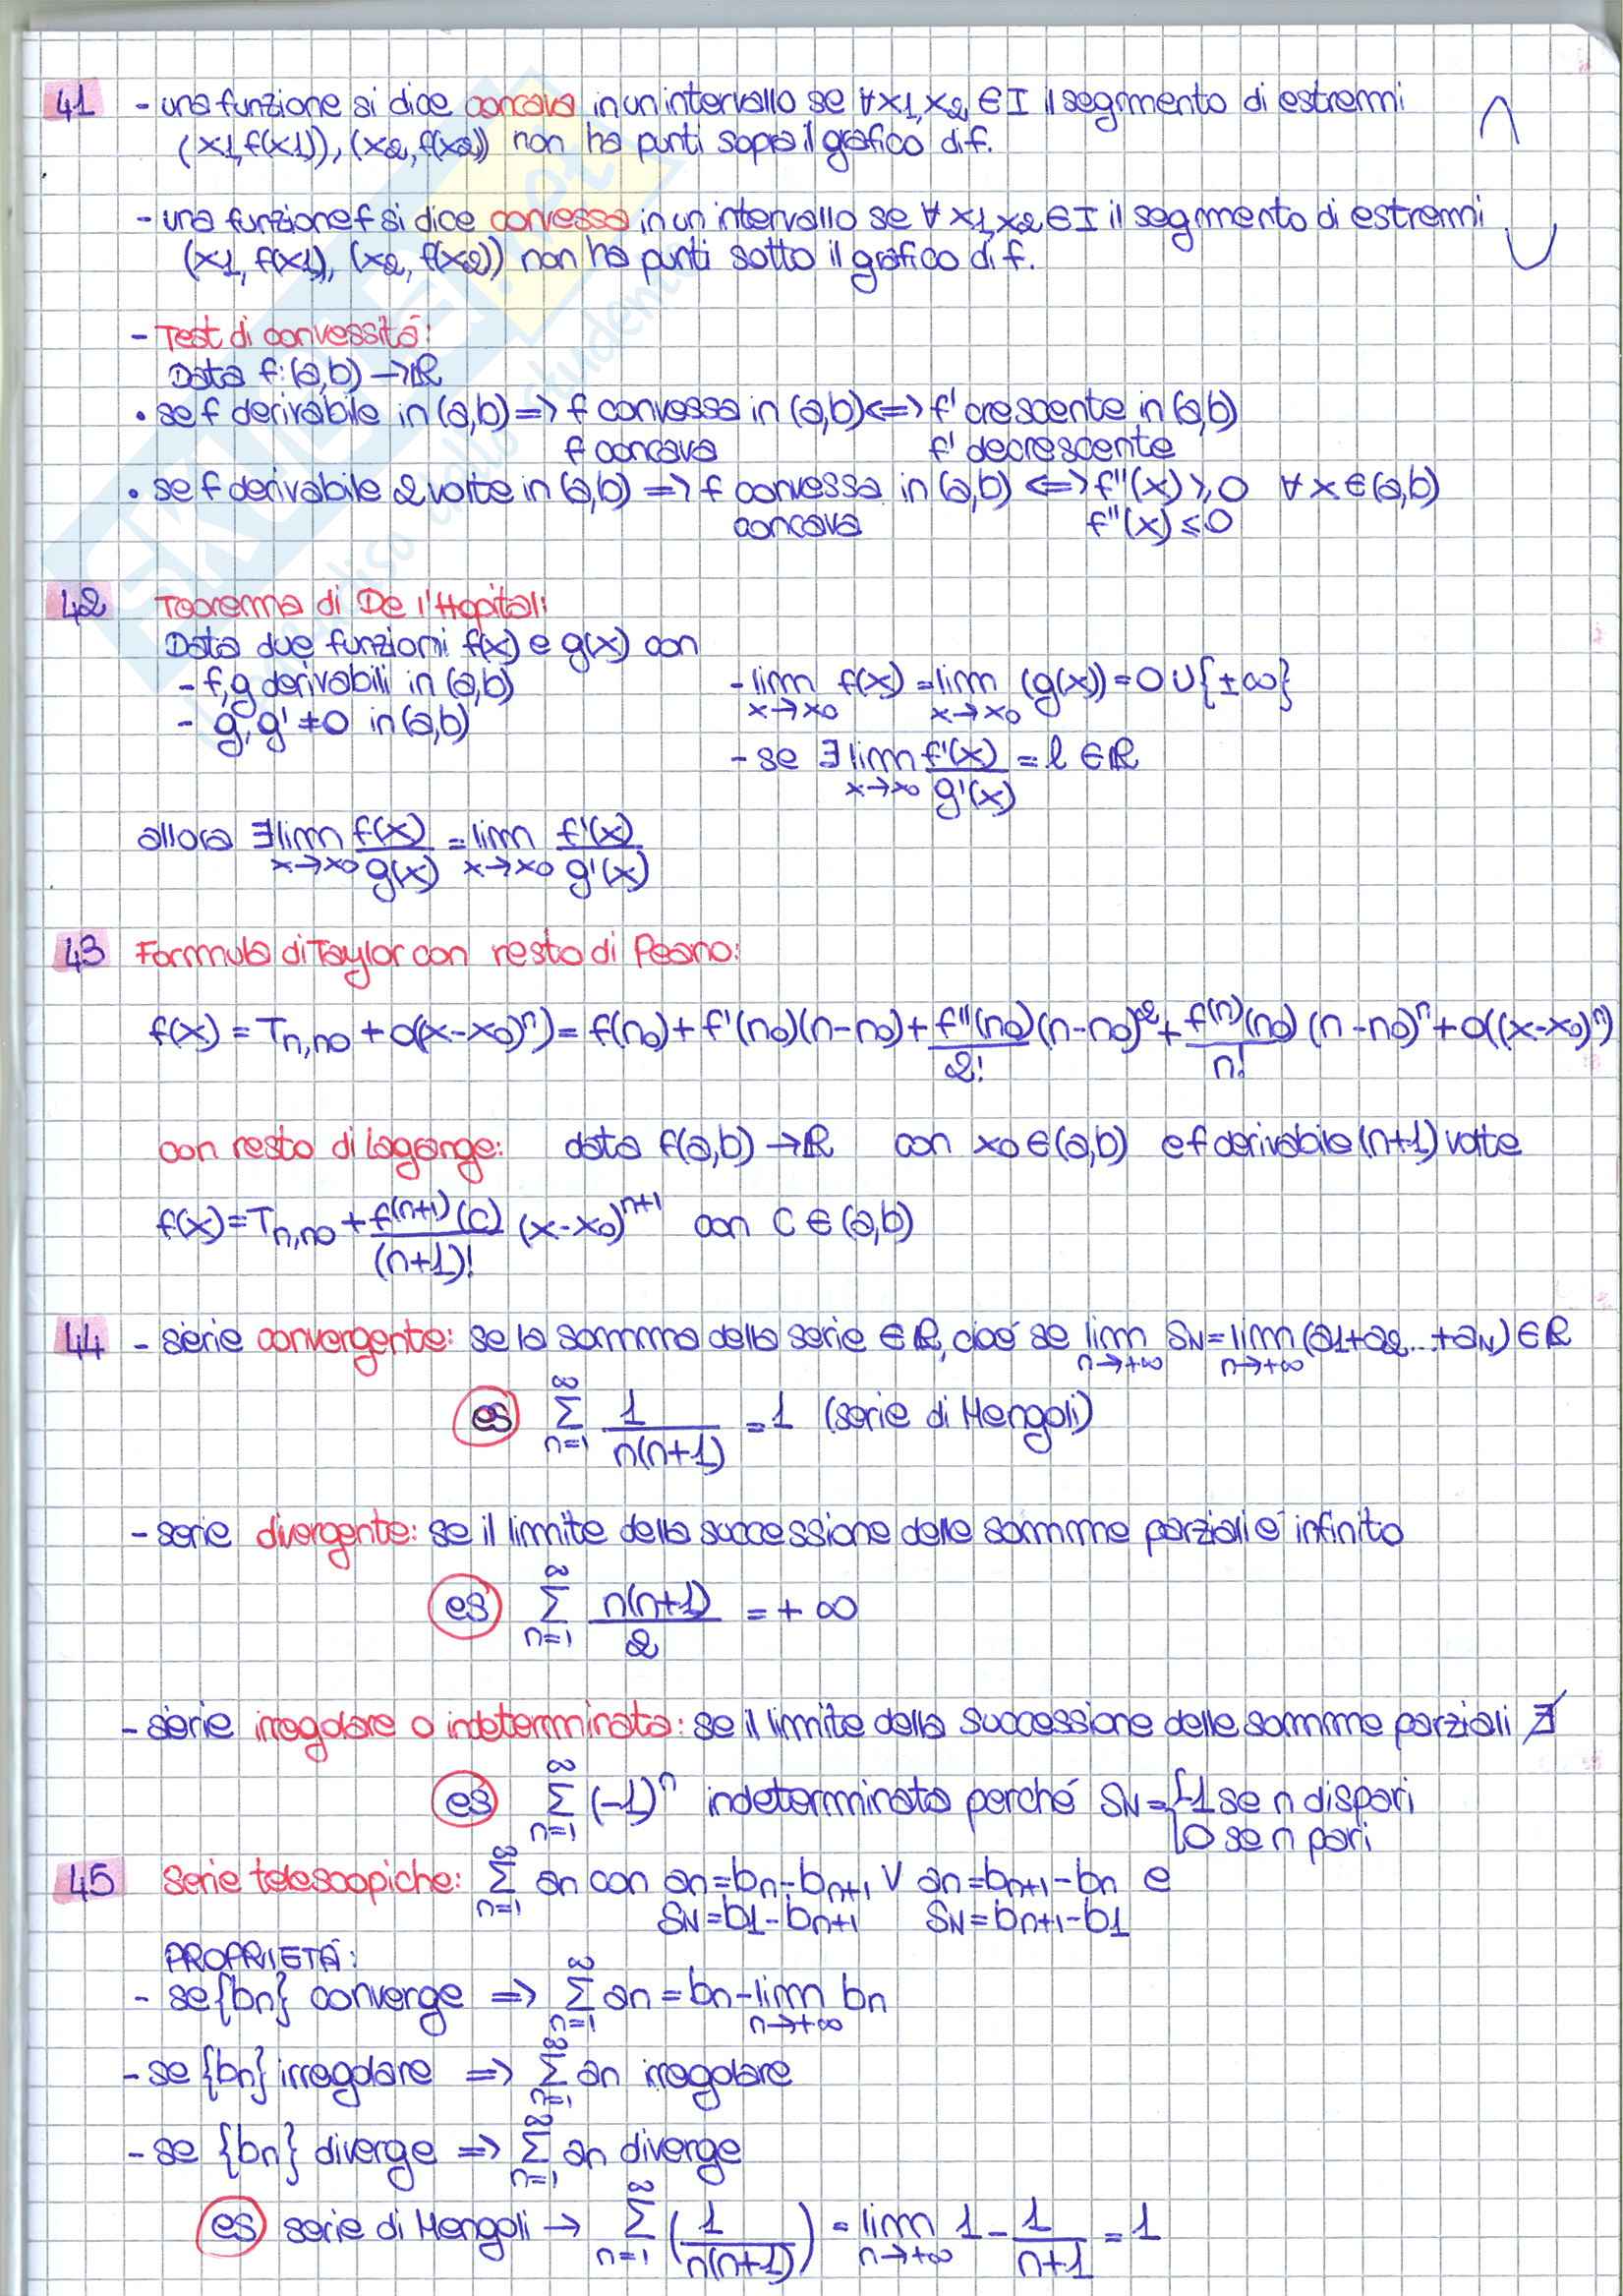 41 - una funzione si dice concava in un intervallo se ∀x1, x2, ∈ I il segmento di estremi
(x1, f(x1)), (x2, f(x2)) non ha punti sopra il grafico di f.
- una funzione f si dice convessa in un intervallo se ∀ x1, x2 ∈ I il segmento di estremi
(x1, f(x1), (x2, f(x2)) non ha punti sotto il grafico di f.
- Test di convessità:
Data f: (a,b) → ℝ
• se f derivabile in (a,b) => f convessa in (a,b) <=> f' crescente in (a,b)
f concava f' decrescente
• se f derivabile 2 volte in (a,b) => f convessa in (a,b) <=> f''(x) ≥ 0 ∀ x ∈ (a,b)
concava f''(x) ≤ 0
42 Teorema di De l'Hopital:
Data due funzioni f(x) e g(x) con
- f, g derivabili in (a,b) - lim x→x0 f(x) = lim x→x0 (g(x)) = 0 ∪ {±∞}
- g, g' ≠ 0 in (a,b)
- se ∃ lim x→x0 f'(x)/g'(x) = l ∈ ℝ
allora ∃ lim x→x0 f(x)/g(x) = lim x→x0 f'(x)/g'(x)
43 Formula di Taylor con resto di Peano:
f(x) = Tn,n0 + o(x-x0)^n) = f(n0) + f'(n0)(n-n0) + f''(n0)/2! (n-n0)^2 + f^(n)(n0)/n! (n-n0)^n + o((x-x0)^n)
con resto di Lagange: data f(a,b) → ℝ con x0 ∈ (a,b) e f derivabile (n+1) volte
f(x) = Tn,n0 + f^(n+1)(c)/(n+1)! (x-x0)^n+1 con c ∈ (a,b)
44 - serie convergente: se la somma della serie ∈ ℝ, cioé se lim n→+∞ SN = lim n→+∞ (a1+a2...+aN) ∈ ℝ
es ∞ Σ n=1 1/n(n+1) = 1 (serie di Mengoli)
- serie divergente: se il limite della successione delle somme parziali é infinito
es ∞ Σ n=1 n(n+1)/2 = + ∞
- serie irregolare o indeterminata: se il limite della successione delle somme parziali ∄
es ∞ Σ n=1 (-1)^n indeterminata perché SN = {-1 se n dispari
0 se n pari
45 Serie telescopiche: ∞ Σ n=1 an con an = bn - bn+1 ∨ an = bn+1 - bn e
SN = b1 - bn+1 SN = bn+1 - b1
PROPRIETÁ:
- se {bn} converge => ∞ Σ n=1 an = bn - lim n→+∞ bn
- se {bn} irregolare => ∞ Σ n=1 an irregolare
- se {bn} diverge => ∞ Σ n=1 an diverge
es serie di Mengoli → ∞ Σ n=1 (1/n(n+1)) = lim n→+∞ 1 - 1/n+1 = 1